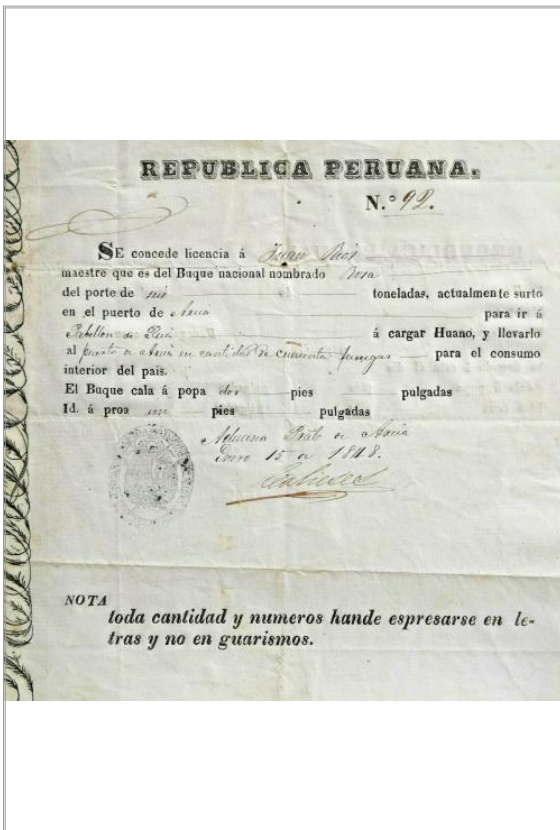 REPUBLICA PERUANA.
N.º 92.
SE concede licencia á Juan
maestre que es del Buque nacional nombrado Rosa
del porte de toneladas, actualmente surto
en el puerto de Arica para ir á
Pabellon de Pica á cargar Huano, y llevarlo
al puerto de Arica en cantidad de cuarenta fanegas para el consumo
interior del pais.
El Buque cala á popa dos pies pulgadas
Id. á proa un pies pulgadas
Aduana Pral de Arica
Enero 15 de 1848.
NOTA
toda cantidad y numeros hande espresarse en le-
tras y no en guarismos.